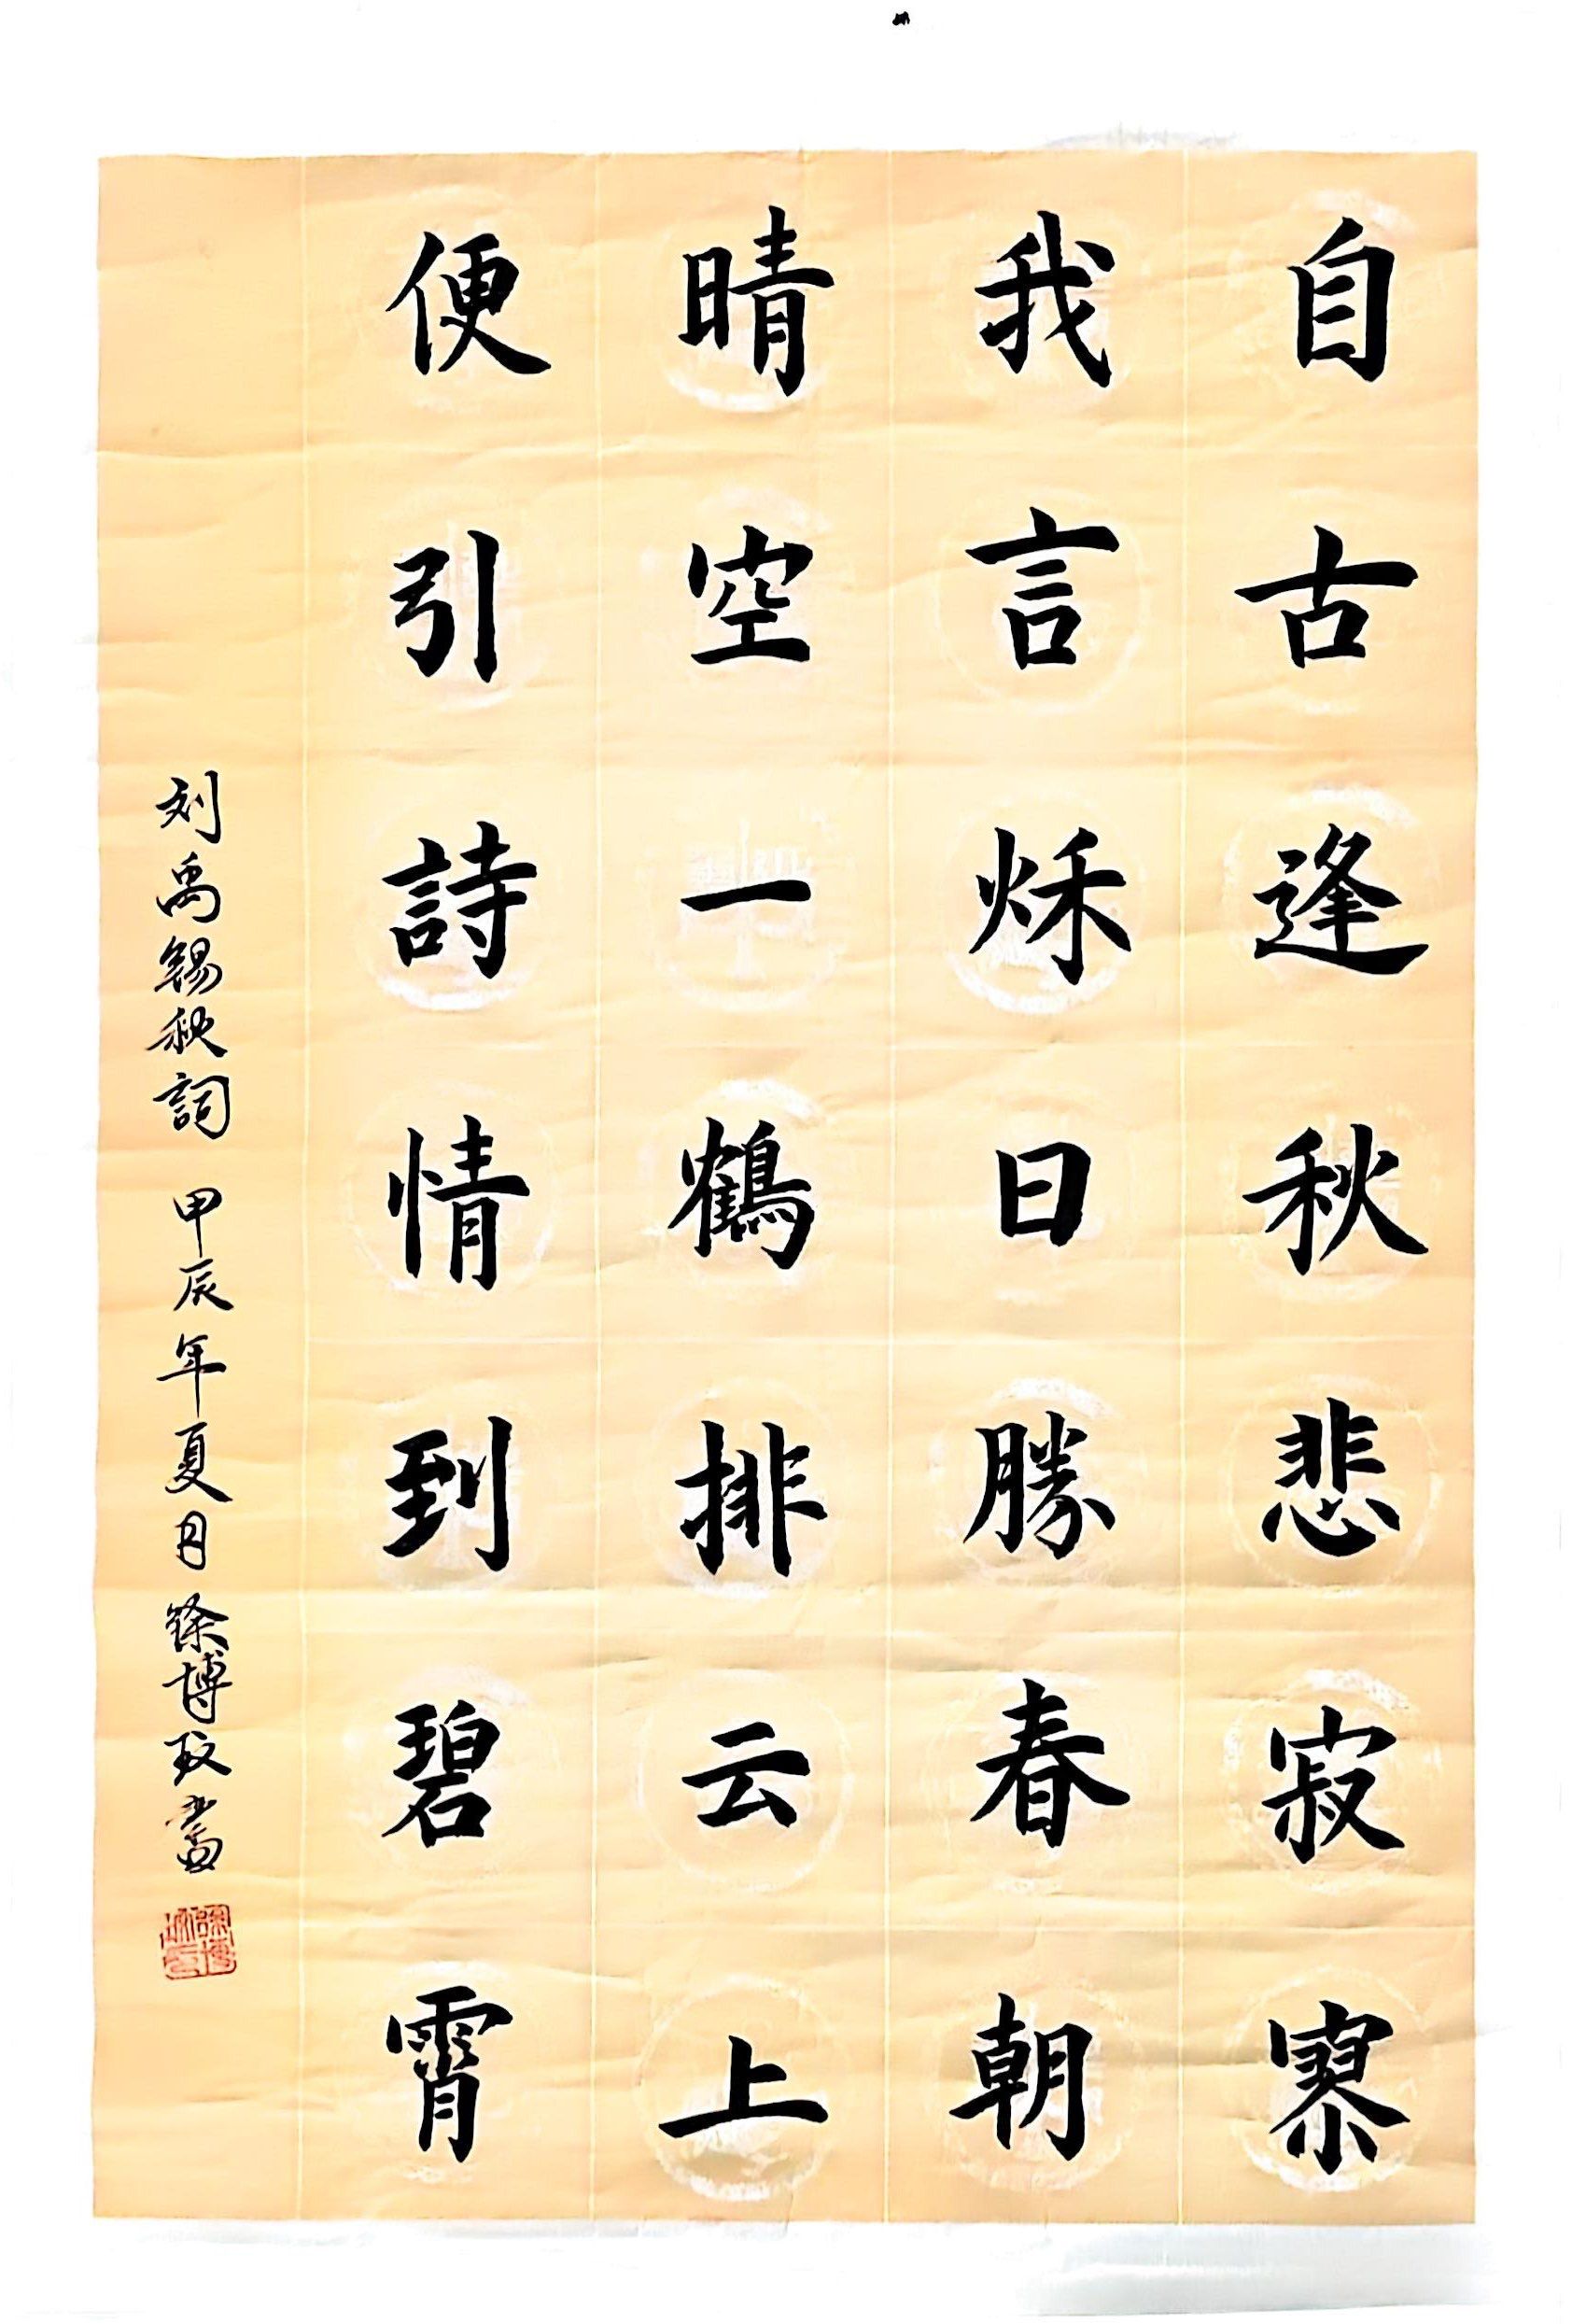 自古逢秋悲寂寥
我言秌日勝春朝
晴空一鶴排云上
便引詩情到碧霄
刘禹錫秋詞 甲辰年夏月 徐博玟書